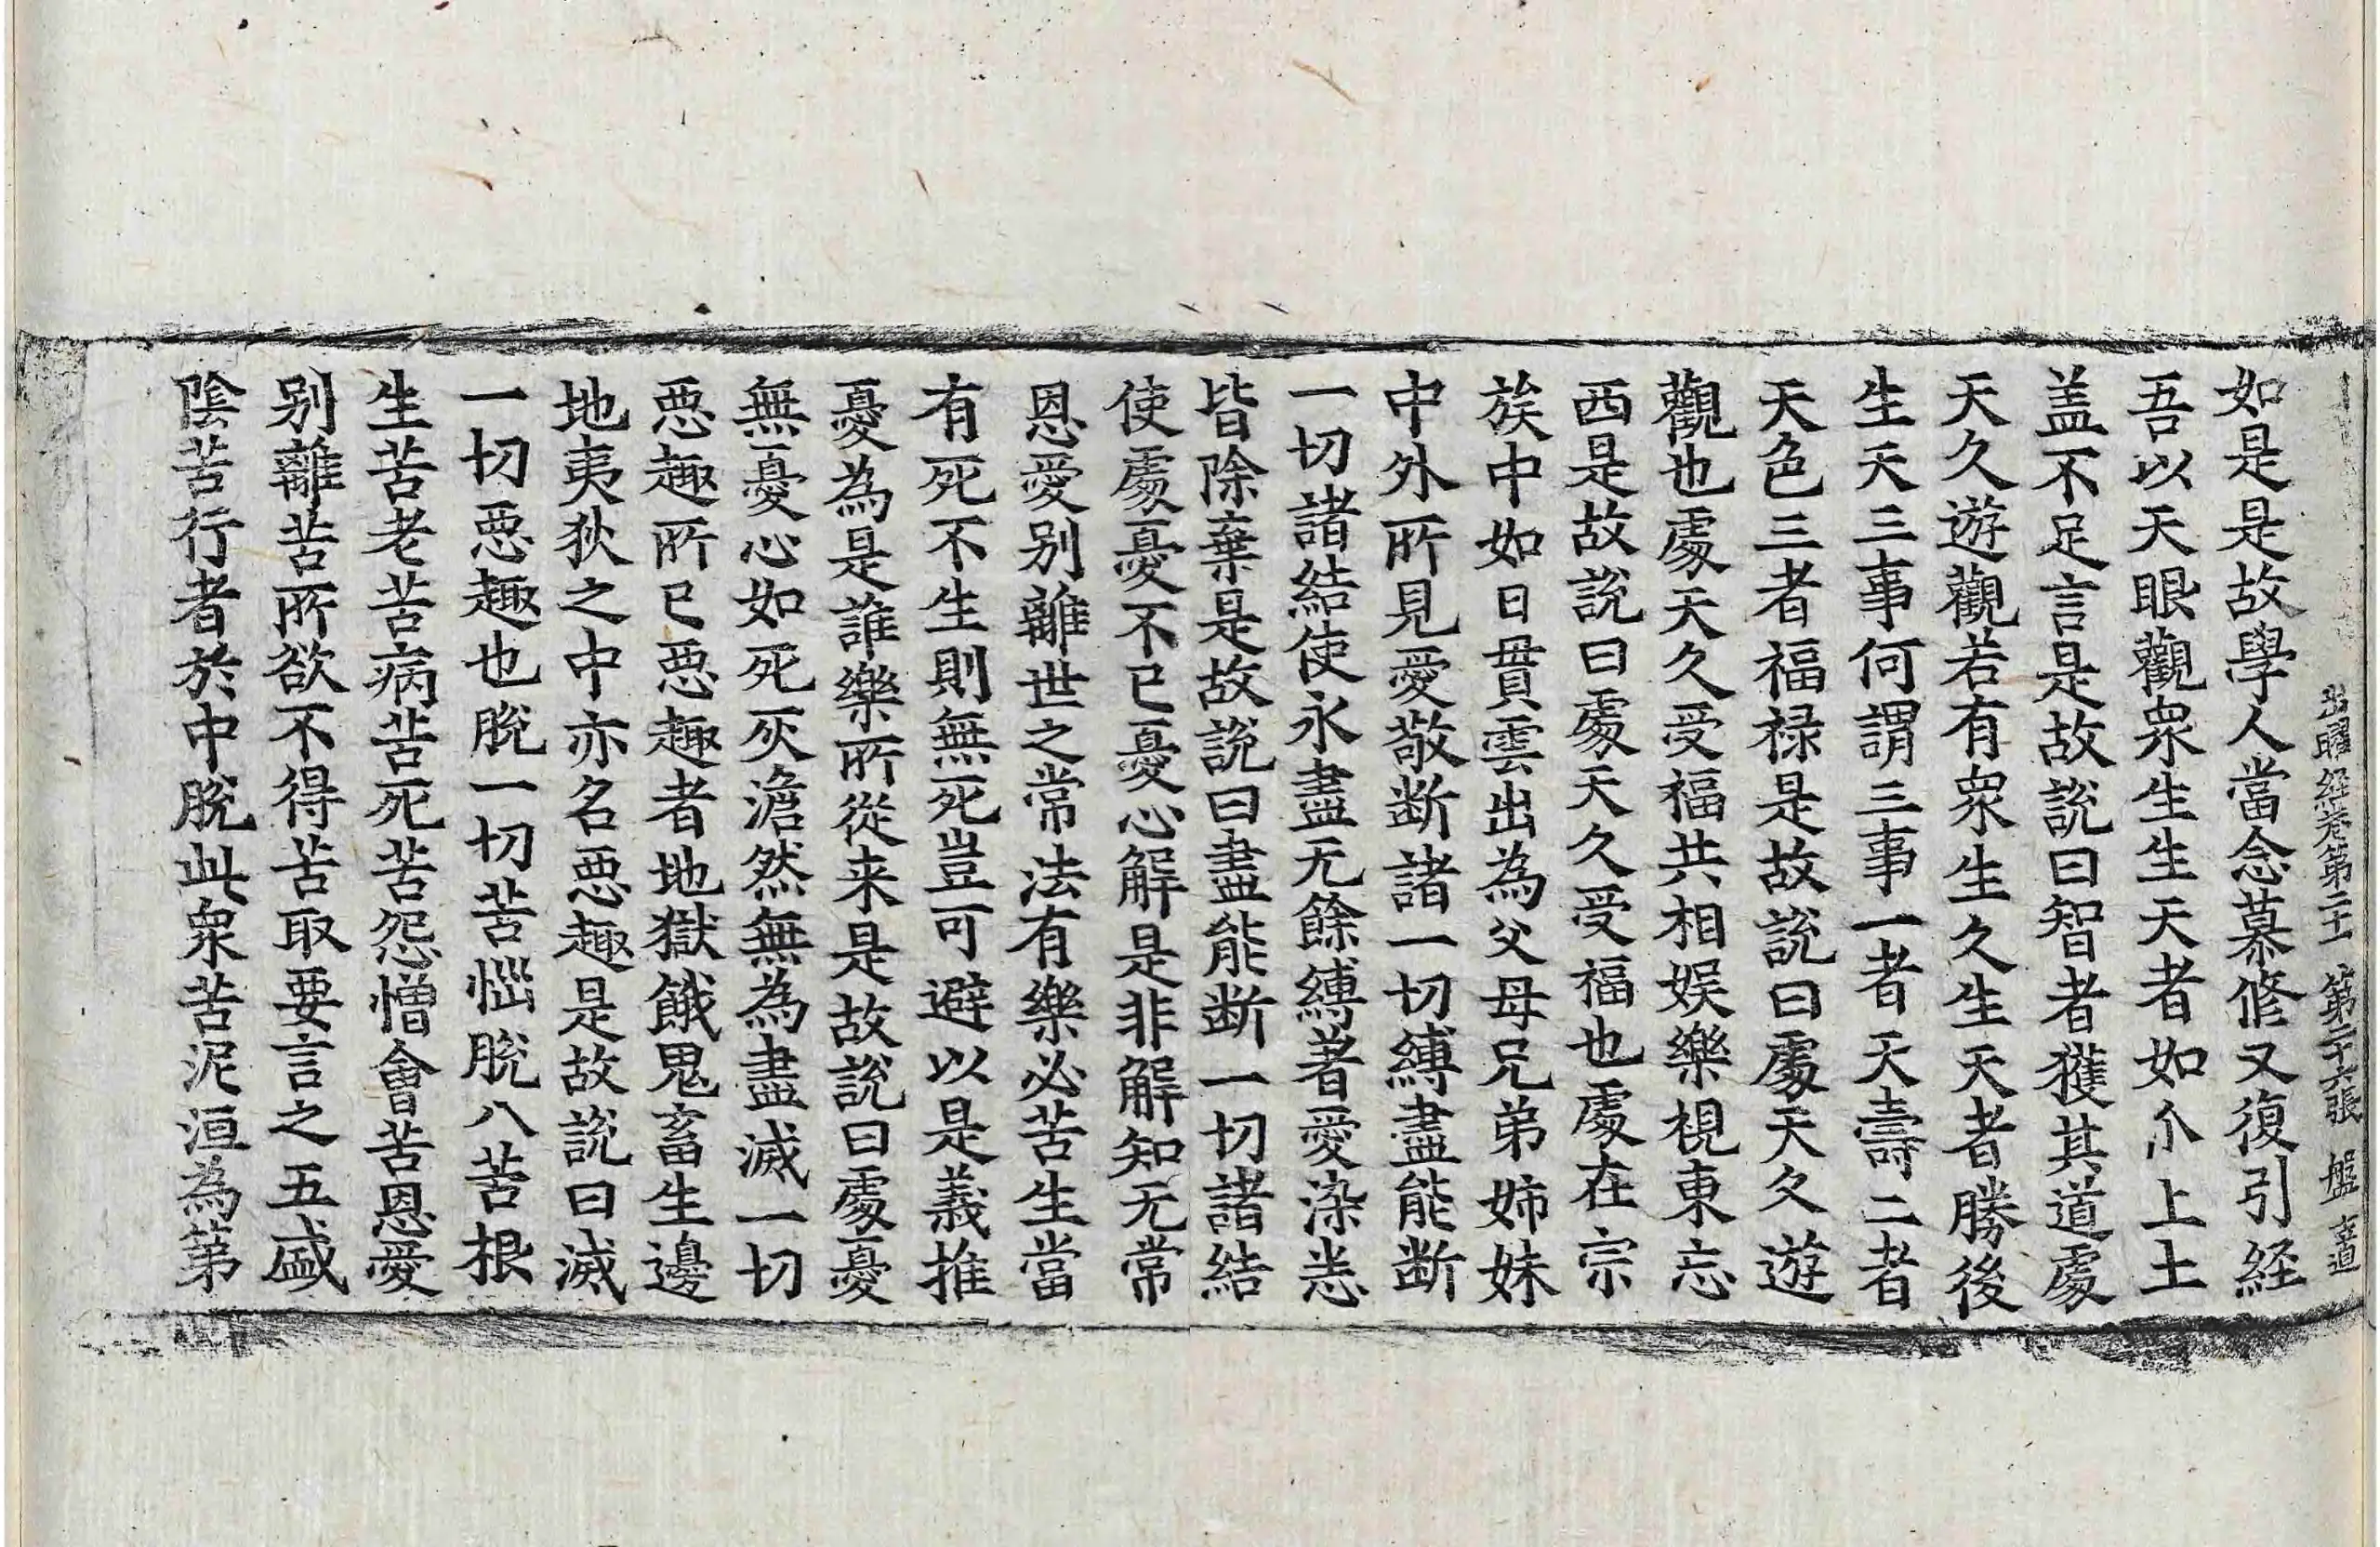 出曜経卷第二十一 第二十六張 盤
如是是故學人當念慕修又復引経
吾以天眼觀衆生生天者如尒上土
盖不足言是故說曰智者獲其道處
天久遊觀若有衆生久生天者勝後
生天三事何謂三事一者天壽二者
天色三者福禄是故說曰處天久遊
觀也處天久受福共相娱樂視東忘
西是故說曰處天久受福也處在宗
族中如日貫雲出為父母兄弟姉妹
中外所見愛敬断諸一切縛盡能断
一切諸結使永盡无餘縛著愛染恙
皆除棄是故說曰盡能断一切諸結
使處憂不已憂心解是非解知无常
恩愛别離世之常法有樂必苦生當
有死不生則無死豈可避以是義推
憂為是誰樂所從来是故說曰處憂
無憂心如死灰澹然無為盡滅一切
惡趣所已惡趣者地獄餓鬼畜生邊
地夷狄之中亦名惡趣是故說曰滅
一切惡趣也脫一切苦惱脫八苦根
生苦老苦病苦死苦怨憎會苦恩愛
别離苦所欲不得苦取要言之五盛
陰苦行者於中脫此衆苦泥洹為第